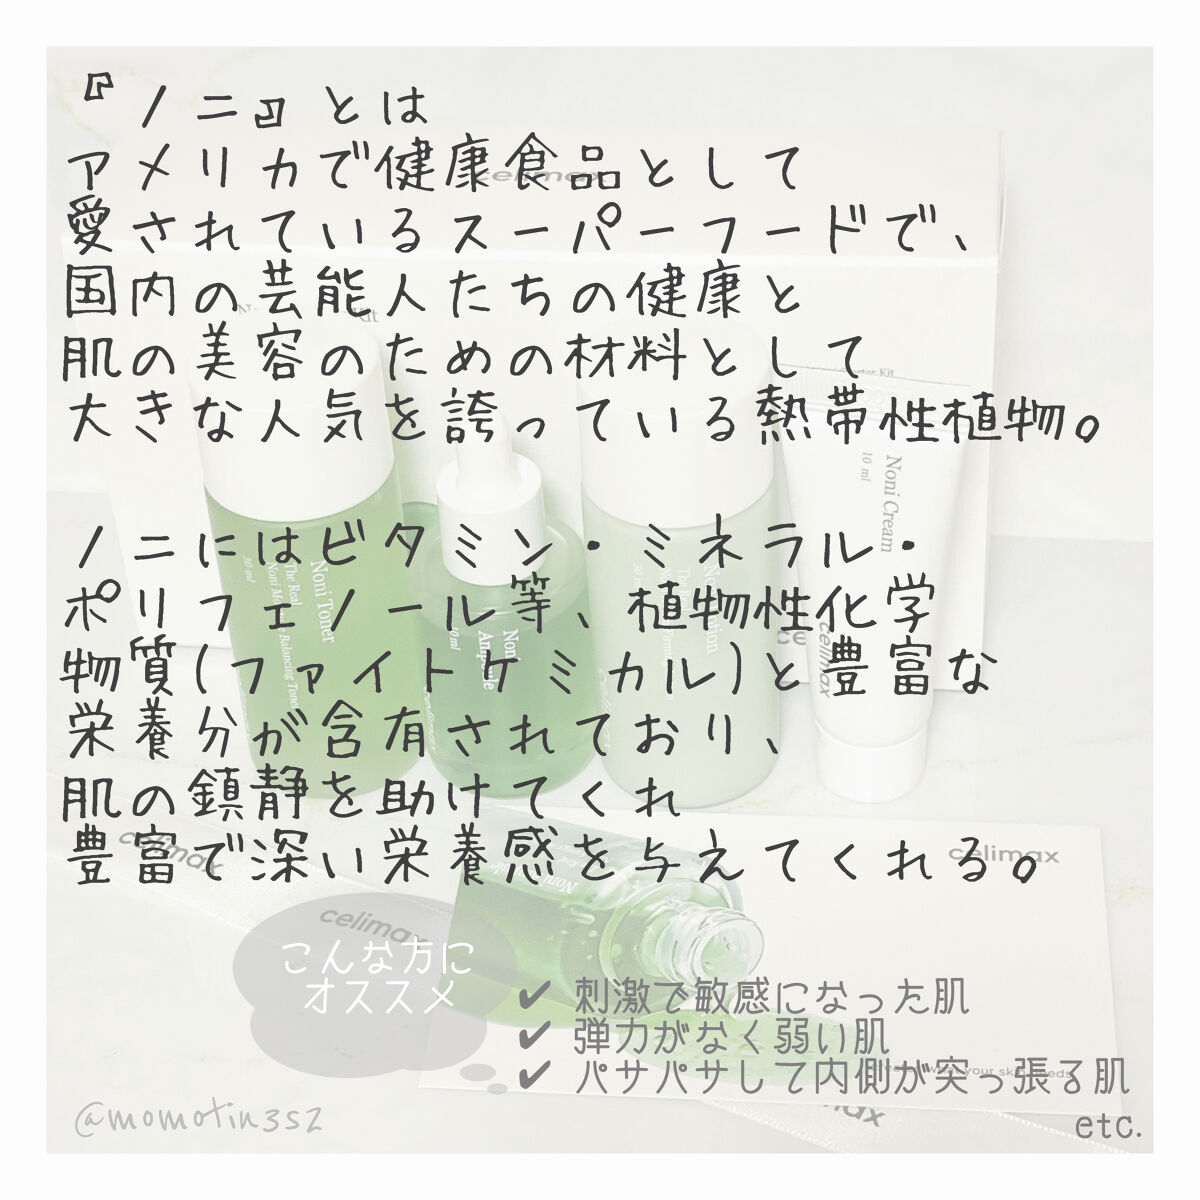 『ノニ』とは
アメリカで健康食品として
愛されているスーパーフードで、
国内の芸能人たちの健康と
肌の美容のための材料として
大きな人気を誇っている熱帯性植物。
ノニにはビタミン・ミネラル・
ポリフェノール等、植物性化学
物質(ファイトケミカル)と豊富な
栄養分が含有されており、
肌の鎮静を助けてくれ
豊富で深い栄養感を与えてくれる。
こんな方に
オススメ
✔ 刺激で敏感になった肌
✔ 弾力がなく弱い肌
✔ パサパサして内側が突っ張る肌
etc.
@momotin352
celimax
Noni Toner
The Real
10 ml
Noni Ampoule
10ml
Noni Cream
10 ml
celimax
celimax
celimax
celimax
celimax